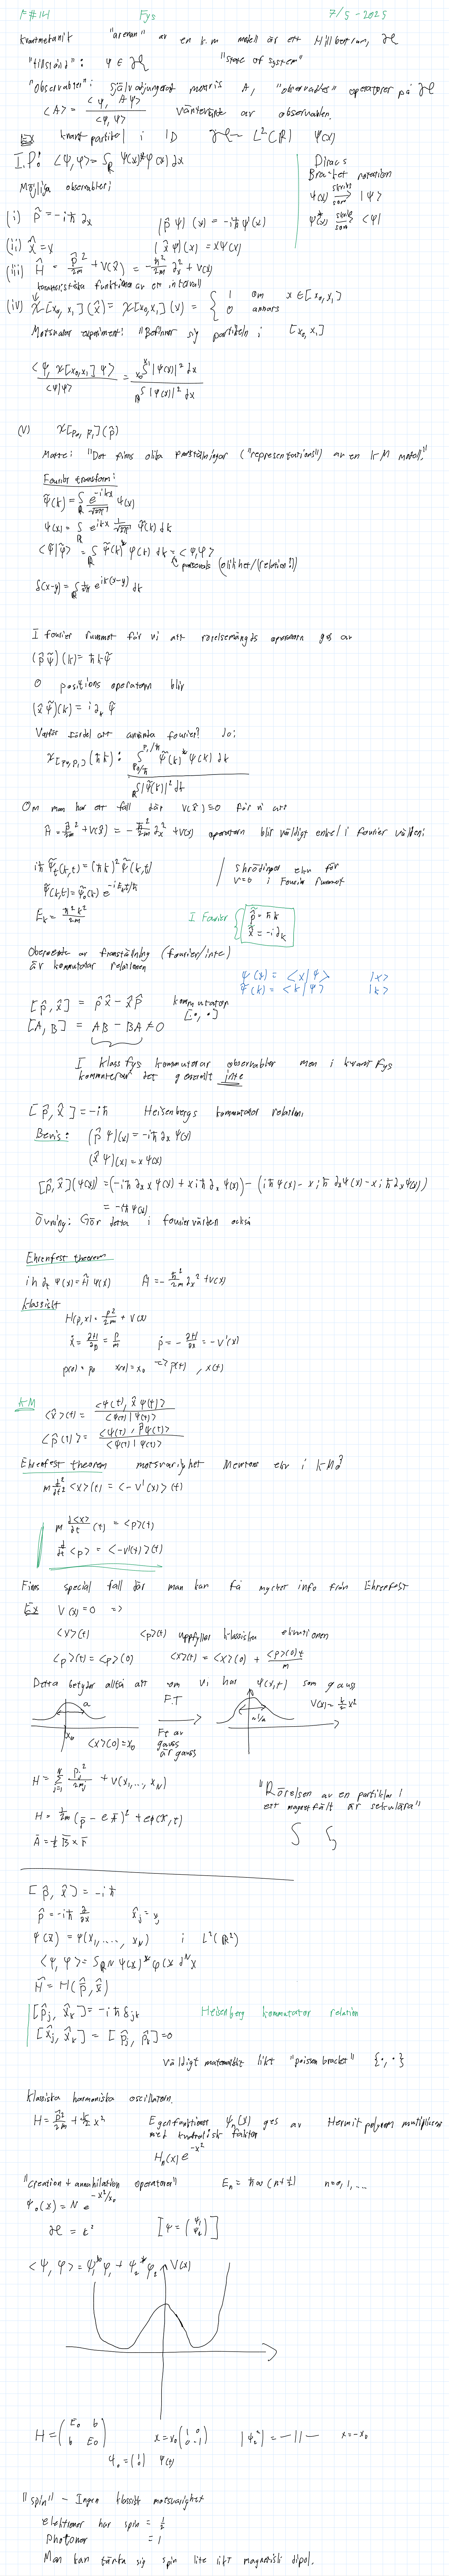 F#14 Fys 7/5-2025
kvantmekanik "arenan" av en k.m modell är ett Hilbertrum, ℋ
"tillstånd": ψ ∈ ℋ "state of system"
"Observabler": självadjungerat A, "observabler" operatorer på ℋ
<A> = <ψ, Aψ> / <ψ, ψ> väntevärde av observabeln
Ex kvant partikel i 1D ℋ = L²(ℝ) ψ(x)
I.P: <ψ, φ> = ∫_ℝ ψ(x)* φ(x) dx
Diracs Bracket notation
ψ(x) skrivs som → |ψ>
ψ(x)* skrivs som → <ψ|
Möjliga observabler:
(i) p̂ = -iħ ∂x (p̂ψ)(x) = -iħ ψ'(x)
(ii) x̂ = x (x̂ψ)(x) = xψ(x)
(iii) Ĥ = p̂²/2m + V(x̂) = -ħ²/2m ∂x² + V(x)
karakteristiska funktionen av ett intervall
(iv) χ[x0, x1](x̂) = χ[x0, x1](x) = { 1 om x ∈ [x0, x1] 0 annars
Motsvarar experiment: "Befinner sig partikeln i [x0, x1]
<ψ, χ[x0,x1] ψ> / <ψ|ψ> = ∫_x0^x1 |ψ(x)|² dx / ∫_ℝ |ψ(x)|² dx
(v) χ[p0, p1](p̂)
Matte: "Det finns olika framställningar ("representations") av en KM modell."
Fourier transform:
ψ̃(k) = ∫_ℝ e^{-ikx}/√2π ψ(x)
ψ(x) = ∫_ℝ e^{ikx} 1/√2π ψ̃(k) dk
<ψ̃|φ̃> = ∫_ℝ ψ̃(k)* φ̃(k) dk = <ψ, φ>
parsevals (olikhet/(relation!))
δ(x-y) = ∫_ℝ 1/2π e^{ik(x-y)} dk
I fourier rummet får vi att rörelsemängds operatorn ges av
(p̂ψ̃)(k) = ħkψ̃
O positions operatorn blir
(x̂ψ̃)(k) = i∂k ψ̃
Varför fördel att använda fourier? Jo:
χ[p0, p1](ħk): ∫_{p0/ħ}^{p1/ħ} ψ̃(k)* ψ̃(k) dk / ∫_ℝ |ψ̃(k)|² dk
Om man har ett fall där V(x̂)=0 får vi att
Ĥ = p̂²/2m + V(x̂) = -ħ²/2m ∂x² + V(x) operatorn blir väldigt enkel i Fourier världen:
iħ ψ̃t(k,t) = (ħk)² ψ̃(k,t)
ψ̃(k,t) = ψ̃0(k) e^{-iEkt/ħ}
Ek = ħ²k²/2m
/ Shrödinger ekv för V=0 i Fourier rummet
I Fourier { p̂ = ħk x̂ = -i∂k
Oberoende av framställning (fourier/inte)
är kommutator relationen
ψ(x) = <x|ψ> |x>
ψ̃(k) = <k|ψ> |k>
[p̂, x̂] = p̂x̂ - x̂p̂ kommutator [·, ·]
[A, B] = AB - BA ≠ 0
I klass fys kommuterar observabler men i kvant fys
kommuterar det generellt inte
[p̂, x̂] = -iħ Heisenbergs kommutator relation
Bevis: (p̂ψ)(x) = -iħ ∂x ψ(x)
(x̂ψ)(x) = xψ(x)
[p̂, x̂](ψ(x)) = (-iħ ∂x xψ(x) + xiħ ∂x ψ(x)) = (-iħ ψ(x) - xiħ ∂xψ(x) - xiħ ∂xψ(x))
= -iħψ(x)
Övning: Gör detta i fouriervärlden också
Ehrenfest theorem
iħ ∂t ψ(x) = Ĥ ψ(x) Ĥ = -ħ²/2m ∂x² + V(x)
klassiskt
H(p,x) = p²/2m + V(x)
ẋ = ∂H/∂p = p/m ṗ = -∂H/∂x = -V'(x)
p(0) = p0 x(0) = x0 => p(t), x(t)
KM
<x̂>(t) = <ψ(t), x̂ψ(t)> / <ψ(t)|ψ(t)>
<p̂(t)> = <ψ(t), p̂ψ(t)> / <ψ(t)|ψ(t)>
Ehrenfest theorem motsvarighet Newtons ekv i KM?
m d²/dt² <x>(t) = <-V'(x)>(t)
m d<x>/dt (t) = <p>(t)
d/dt <p> = <-V'(t)>(t)
Finns special fall där man kan få mycket info från Ehrenfest
Ex V(x) = 0 =>
<x>(t) <p>(t) uppfyller klassiska ekvationen
<p>(t) = <p>(0) <x>(t) = <x>(0) + <p>(0)t/m
Detta betyder alltså att om vi har ψ(x,t) som gauss
a F.T → ~1/a V(x) = k/2 x²
x0 <x>(0) = x0 Ft av gauss är gauss
H = Σ_{j=1}^N pj²/2mj + V(x1, ..., xN)
H = 1/2m (p̄ - eĀ)² + eφ(x, t)
Ā = ½ B̄ × r̄
"Rörelsen av en partiklar i ett magnetfält är sekulära"
[p̂, x̂] = -iħ
p̂ = -iħ ∂/∂x x̂j = xj
ψ(x̄) = ψ(x1, ..., xN) i L²(ℝ²)
<ψ, φ> = ∫_ℝN ψ(x)* φ(x) d^N x
Ĥ = H(p̂, x̂)
[p̂j, x̂k] = -iħ δjk Heisenberg kommutator relation
[x̂j, x̂k] = [p̂j, p̂k] = 0
Väldigt matematiskt likt "poisson bracket" {·, ·}
Klassiska harmoniska oscillatorn.
H = p̂²/2m + k/2 x² Egenfunktioner ψn(x) ges av Hermit polynom multiplicerat
med kvadratisk faktor
Hn(x) e^{-x²}
"creation + annahilation operatorer" En = ħω(n + ½) n = 0, 1, ...
ψ0(x) = N e^{-x²/x0}
ℋ = ℂ² [ψ = (ψ1 ψ2)]
<ψ, φ> = ψ1* φ1 + ψ2* φ2 V(x)
H = (E0 b b E0) x = x0 (1 0 0 -1) |ψ2²| = —||— x = -x0
ψ0 = (1 0) ψ(t)
"spin" - Ingen klassisk motsvarighet
elektroner har spin = ½
Photoner = 1
Man kan tänka sig spin lite likt magnetisk dipol.